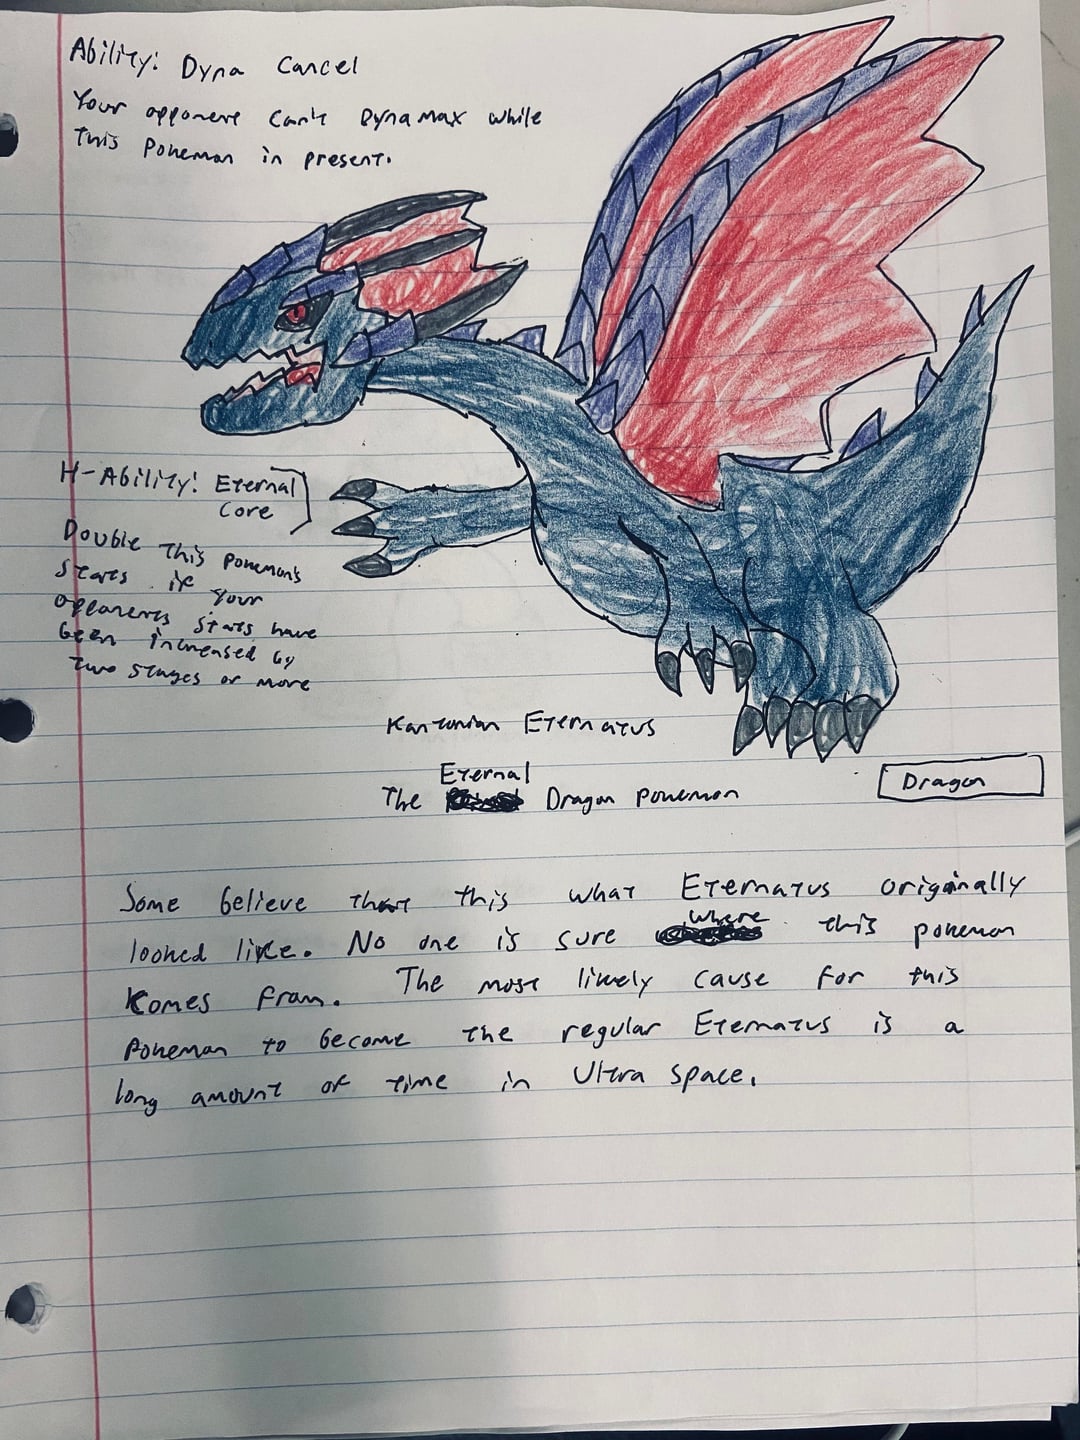 Ability: Dyna Cancel
Your opponent can't Dynamax while
this Pokemon in present.
H-Ability: Eternal
Core
Double this pokemon's
stats if your
opponents stats have
been increased by
two stages or more
Kantonian Eternatus
Eternal
The Dragon pokemon
Dragon
Some believe that this what Eternatus originally
looked like. No one is sure where this pokemon
comes from. The most likely cause for this
Pokemon to become the regular Eternatus is a
long amount of time in Ultra Space.